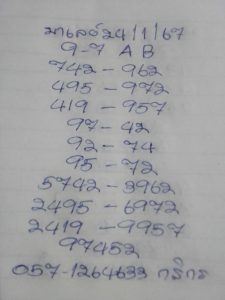 มาเลย์24/1/67
9-7 A B
742-962
495-972
419-957
97-42
92-74
95-72
5742-3962
2495-6972
2419-9957
97452
057-1264633